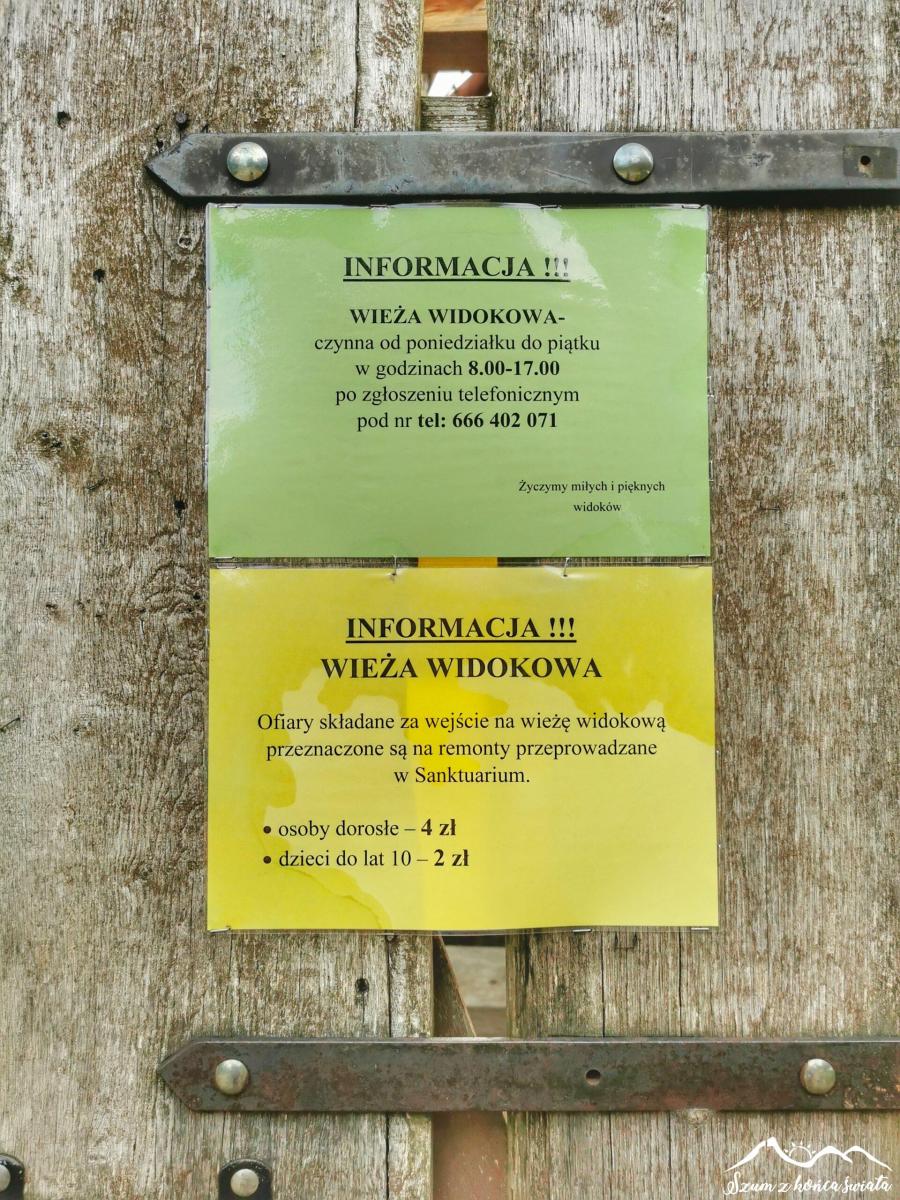 INFORMACJA !!!
WIEŻA WIDOKOWA-
czynna od poniedziałku do piątku
w godzinach 8.00-17.00
po zgłoszeniu telefonicznym
pod nr tel: 666 402 071
Życzymy miłych i pięknych
widoków
INFORMACJA !!!
WIEŻA WIDOKOWA
Ofiary składane za wejście na wieżę widokową
przeznaczone są na remonty przeprowadzane
w Sanktuarium.
• osoby dorosłe – 4 zł
• dzieci do lat 10 – 2 zł
Szum z końca świata